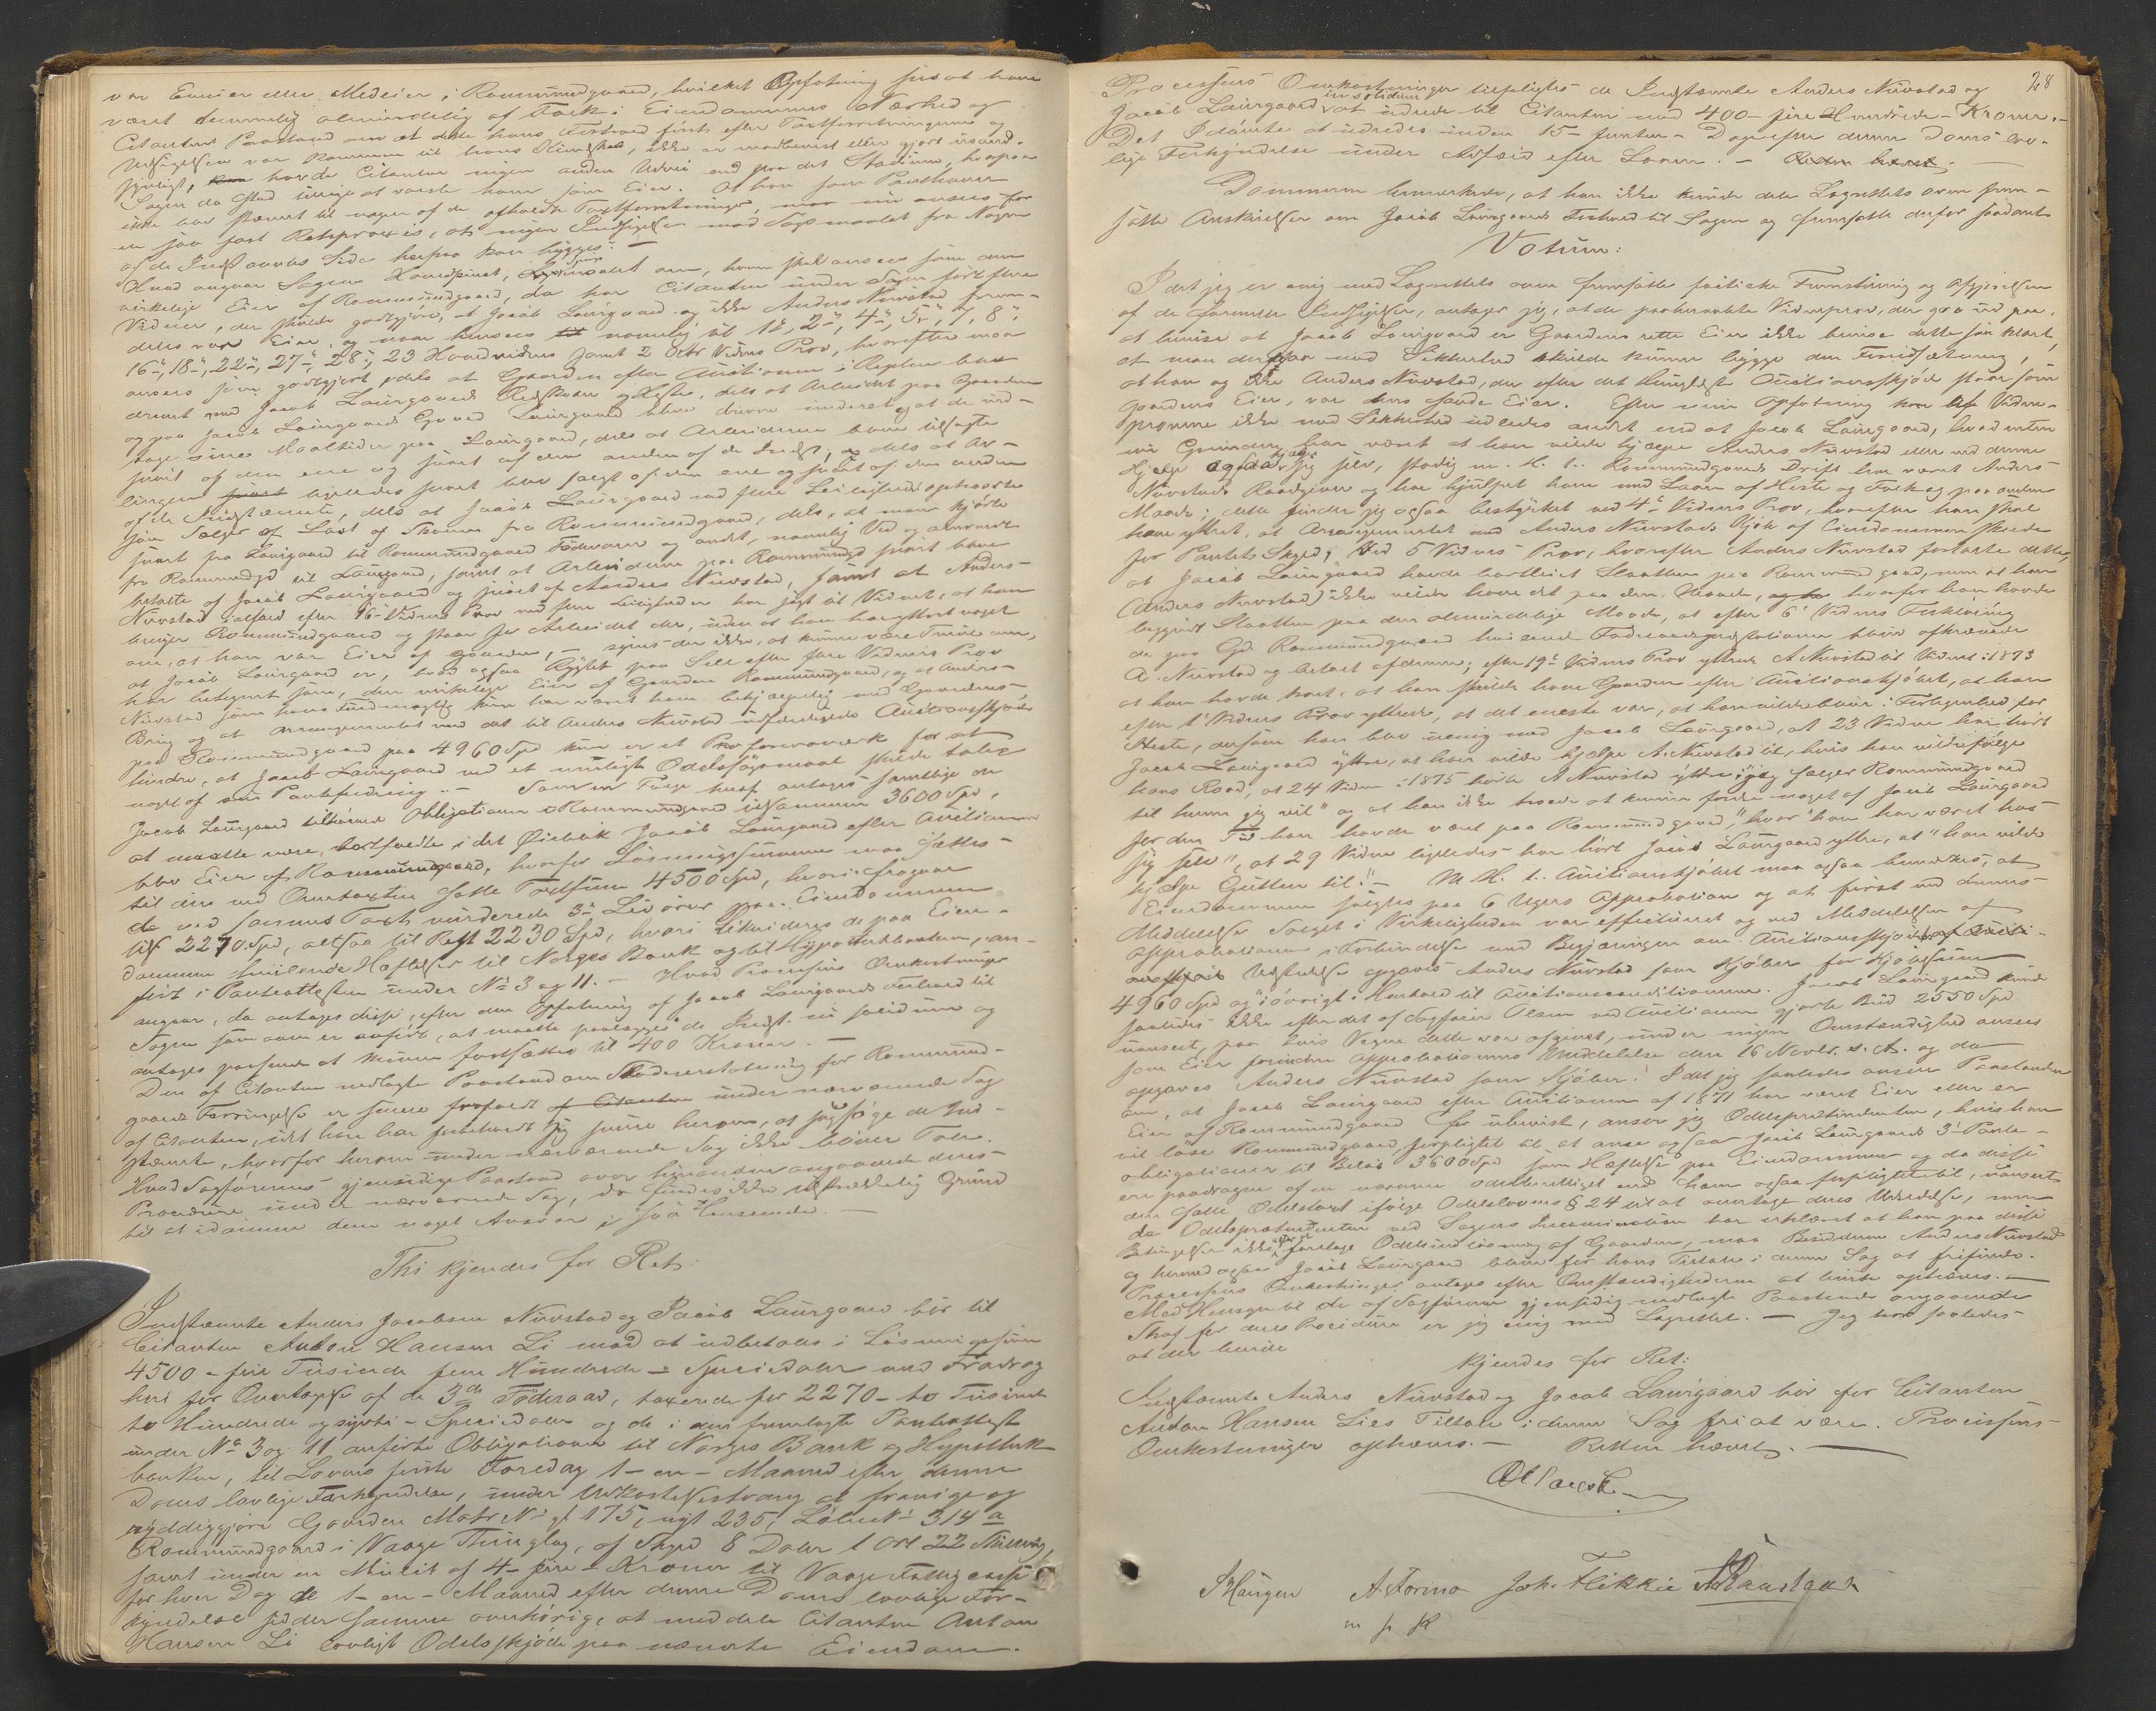 var Eneeier eller Medeier i Rommundgaard, hvilket Opfatning synes at have
været temmelig almindelig af Folk i Eiendommens Nærhed og
Citantens Paastand om at dette hans Forhold først efter Taxtforretningerne og
Udsigelsen var kommen til hans Kundskab, ikke er modbevist eller gjort usand-
synligt, havde Citanten ingen anden Udvei end paa det Stadium, hvorpaa
Sagen da stod at varsle ham som Eier. At han som Panthaver
ikke har stævnet til nogen af de afholdte Taxtforretninger, maa nu ansees for
en saa fast Retspraxis, at ingen Indsigelse mod Søgsmaalet fra Nogen
af de Indstævntes Side herpaa kan bygges. —
Hvad angaar Sagens Hovedpunct, Spørsmaalet om, hvem skal ansees som den
virkelige Eier af Rommundgaard, da har Citanten under Sagen ført flere
Vidner, der skulde godtgjøre, at Jacob Laurgaard og ikke Anders Nurstad frem-
deles var Eier, og naar hensees til navnlig til 1s, 2s, 4s, 5s, 7, 8s,
16s, 18s, 22s, 27s, 28s, 23 Hovedvidners samt 2 Vidners Prov, hvorefter maa
ansees som godtgjort, dels at Gaarden efter Auctionen i Reglen blev
drevet med Jacob Laurgaards Redskaber og Heste, dels at Arbeidet paa Gaarden
og paa Jacob Laurgaards Gaard Laurgaard blev drevne underet og at de ind-
toge sine Maaltider paa Laurgaard, dels at Arbeiderne bleve tilsagte
snart af den ene og snart af den anden af de Indst., og dels at Av-
lingen ligeledes snart blev solgt af den ene og snart af den anden
af de Indstævnte, dels at Jacob Laurgaard ved flere Leiligheder optraadte
som Sælger af Last af Skoven fra Rommundgaard, dels, at man kjørte
snart fra Laurgaard til Rommundgaard Fødevarer og andet, navnlig Ved og omvendt
fra Rommundgd til Laurgaard, samt at Arbeiderne paa Rommundgd snart bleve
betalte af Jacob Laurgaard og snart af Anders Nurstad, samt at Anders
Nurstad ialfald efter 16s Vidnes Prov ved flere Leiligheder har sagt til Vidnet, at han
bruger Rommundgaard og staar for Arbeidet der, uden at han har yttret noget
om, at han var Eier af Gaarden, — synes der ikke, at kunne være Tvivl om,
at Jacob Laurgaard er, hvad ogsaa Rygtet paa Sell efter flere Vidners Prov
har betegnet som, den virkelige Eier af Gaarden Rommundgaard, og at Anders
Nurstad som hans Fuldmægtig kun har været ham behjælpelig med Gaardens
Brug og at Arrangementet med det til Anders Nurstad udfærdigede Auctionsskjøde
paa Rommundgaard paa 4960 Spd kun er et Proformaværk for at
hindre, at Jacob Laurgaard ved et muligt Odelssøgsmaal skulde tabe
noget af sin Pantefordring. — Som en Følge heraf antages samtlige de
Jacob Laurgaard tilhørende Obligationer i Rommundgaard tilsammen 3600 Spd,
at maatte være bortfaldte i det Øieblik Jacob Laurgaard efter Auctionen
blev Eier af Rommundgaard, hvorfor Løsningssummen maa sættes
til den ved Overtaxten satte Taxtsum 4500 Spd, hvori fragaar
de ved samme Taxt vurderede 3de Livøren paa Eiendommen
til 2270 Spd, altsaa til Rest 2230 Spd, hvori likvideres de paa Eien-
dommen hvilende Hæftelser til Norges Bank og til Hypothekbanken, an-
ført i Panteattesten under No 3 og 11. — Hvad Processens Omkostninger
angaar, da antages disse, efter den Opfatning af Jacob Laurgaards Forhold til
Sagen som oven er anført, at maatte paalægges de Indst. in solidum og
antages passende at kunne fastsættes til 400 Kroner. —
Den af Citanten nedlagte Paastand om Skadeserstatning for Rommund-
gaards Forringelse er senere frafaldt under nærværende Sag
af Citanten, idet han har forbeholdt sig senere herom at søge de Ind-
stævnte, hvorfor herom under nærværende Sag ikke bliver Tale.
Hvad Sagførernes gjensidige Paastand over hinanden angaaende deres
Procedure under nærværende Sag, da findes ikke tilstrækkelig Grund
til at idømme dem noget Ansvar i saa Henseende. —
Thi kjendes for Ret:
Indstævnte Anders Jacobsen Nurstad og Jacob Laurgaard bør til
Citanten Anton Hansen Li mod at udbetales i Løsningssum
4500 – fire Tusinde fem Hundrede – Speciedaler med Fradrag
heri for Overtagelse af de 3de Føderaad, taxerede for 2270 – to Tusinde
to Hundrede og sytti – Speciedaler og de i den fremlagte Panteattest
under No 3 og 11 anførte Obligationer til Norges Bank og Hypothek-
banken, til Lovens første Faredag 1 – en – Maaned efter denne
Doms lovlige Forkyndelse, under Udkastelsestvang at fravige og
ryddiggjøre Gaarden Matr No gl 175, nyt 235, Løbe No 314 a
Rommundgaard i Vaage Thinglag, af Skyld 8 Daler 1 Ort 22 Skilling,
samt under en Mulct af 4 – fire – Kroner til Vaage Fattigcasse
for hver Dag de 1 – en – Maaned efter denne Doms lovlige For-
kyndelse sidder samme overhørig, at meddele Citanten Anton
Hansen Li lovligt Odelsskjøde paa nævnte Eiendom.
28
Processens Omkostninger tilpligtes de Indstævnte Anders Nurstad og
Jacob Laurgaard in solidum at udrede til Citanten med 400 – fire Hundrede – Kroner. –
Det Idømte at udredes inden 15 – femten – Dage efter denne Doms lov-
lige Forkyndelse under Adfærd efter Loven. — Retten hævet.
Dommeren bemærkede, at han ikke kunde dele Lagrettets oven frem-
satte Anskuelser om Jacob Laurgaards Forhold til Sagen og fremsatte derfor saadant
Votum:
Idet jeg er enig med Lagrettets oven fremsatte factiske Fremstilling og Afgjørelsen
af de formelle Indsigelser, antager jeg, at de paaberaabte Vidneprov, der gaa ud paa,
at bevise at Jacob Laurgaard er Gaardens rette Eier ikke bevise dette saa klart,
at man derpaa med Sikkerhed skulde kunne bygge den Forudsætning,
at han og ikke Anders Nurstad, der efter det thinglæste Auctionsskjøde staar som
Gaardens Eier, var dens sande Eier. Efter min Opfatning kan af Vidne-
provene ikke med Sikkerhed udledes andet end at Jacob Laurgaard, hvad enten
nu Grunden har været at han vilde hjælpe Anders Nurstad eller ved denne
Hjælp ogsaa hjælpe sig selv, stadig m. H. t. Rommundgaards Drift har været Anders
Nurstads Raadgiver og har hjulpet ham med Laan af Heste og Folk og paa anden
Maade; dette finder jeg ogsaa bestyrket ved 4s Vidnes Prov, hvorefter han skal
have yttret, at Arrangementet med Anders Nurstads Kjøb af Eiendommen skede
for Pantets Skyld, Ved 5 Vidnes Prov, hvorefter Anders Nurstad fortalte dette,
at Jacob Laurgaard havde Slaatten paa Rommundgaard, men at han
(Anders Nurstad) ikke vilde have det paa den Maade, hvorfor han havde
begyndt Slaatten paa den almindelige Maade, at efter 6s Vidnes Forklaring
de paa Gd. Rommundgaard hvilende Føderaadsprestationer blev afkrævede
A. Nurstad og betalt af denne; efter 19s Vidnes Prov yttrede A Nurstad til Vidnet i 1873
at han havde hørt, at han skulde have Gaarden efter Auctionsskjødet, at han
efter 1s Vidnes Prov yttrede, at det eneste var, at han vilde blive i Forlegenhed for
Heste, dersom han blev uenig med Jacob Laurgaard, at 23 Vidne har hørt
Jacob Laurgaard yttre, at han vilde hjælpe A. Nurstad til, hvis han vilde følge
hans Raad, at 24 Vidne i 1875 hørte A Nurstad yttre: "jeg sælger Rommundgaard
til hvem jeg vil" og at han ikke troede at kunne fordre noget af Jacob Laurgaard
for den Tid han havde været paa Rommundgaard, "hvor han har været hos
sig selv", at 29 Vidne ligeledes har hørt Jacob Laurgaard yttre, at "han vilde
hjælpe Gutten til". — M. H. t. Auctionsskjødet maa ogsaa bemærkes, at
Eiendommen solgtes paa 6 Ugers Approbation og at først ved dennes
Meddelelse Salget i Virkeligheden var effectueret og ved Meddelelsen af
Approbationen i Forbindelse med Begjæringen om Auctionsskjødets
Udstedelse opgaves Anders Nurstad som Kjøber for Kjøbesum
4960 Spd og iøvrigt i Henhold til Auctionsconditionerne. Jacob Laurgaard kunde
saaledes ikke efter det af Sagfører Olsen ved Auctionen gjorte Bud 2550 Spd
uanseet, paa hvis Vegne dette var afgivet, under nogen Omstændighed ansees
som Eier forinden Approbationens Meddelelse den 16 Novbr. s. A. og da
opgaves Anders Nurstad som Kjøber. Idet jeg saaledes anseer Paastanden
om, at Jacob Laurgaard efter Auctionen af 1871 har været Eier eller er
Eier af Rommundgaard for ubevist, anser jeg Odelsprætendenten, hvis han
vil løse Rommundgaard, forpligtet til at anse ogsaa Jacob Laurgaards 3 Pante-
obligationer til Beløb 3600 Spd som Hæftelse paa Eiendommen og da disse
ere paadragne af en nærmere odelsberettiget end ham ogsaa forpligtet til, uanseet
den satte Odelstaxt ifølge Odelslovens § 24 til at overtage deres Udredelse, men
da Odelsprætendenten ved Sagens Incamination har erklæret at han paa disse
Betingelser ikke foretage Odelsindløsning af Gaarden, maa Besidderen Anders Nurstad
og hermed ogsaa Jacob Laurgaard blive for hans Tiltale i denne Sag at frifinde.
Processens Omkostninger antages efter Omstændighederne at burde ophæves. —
Med Hensyn til de af Sagførerne gjensidig nedlagte Paastande angaaende
Straf for deres Procedure er jeg enig med Lagrettet. — Jeg tror saaledes
at der burde
kjendes for Ret:
Indstævnte Anders Nurstad og Jacob Laurgaard bør for Citanten
Anton Hansen Lies Tiltale i denne Sag fri at være. Processens
Omkostninger ophæves. — Retten hævet. —
A Forino Joh. Flikkie
m p P